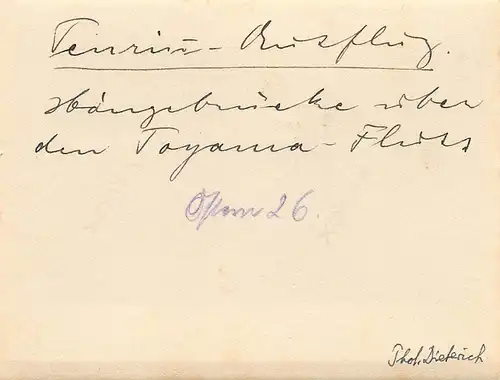 Tenriū-Ausflug.
Hängebrücke über
den Toyama-Fluss
Ostern 26.
Phot. Dieterich